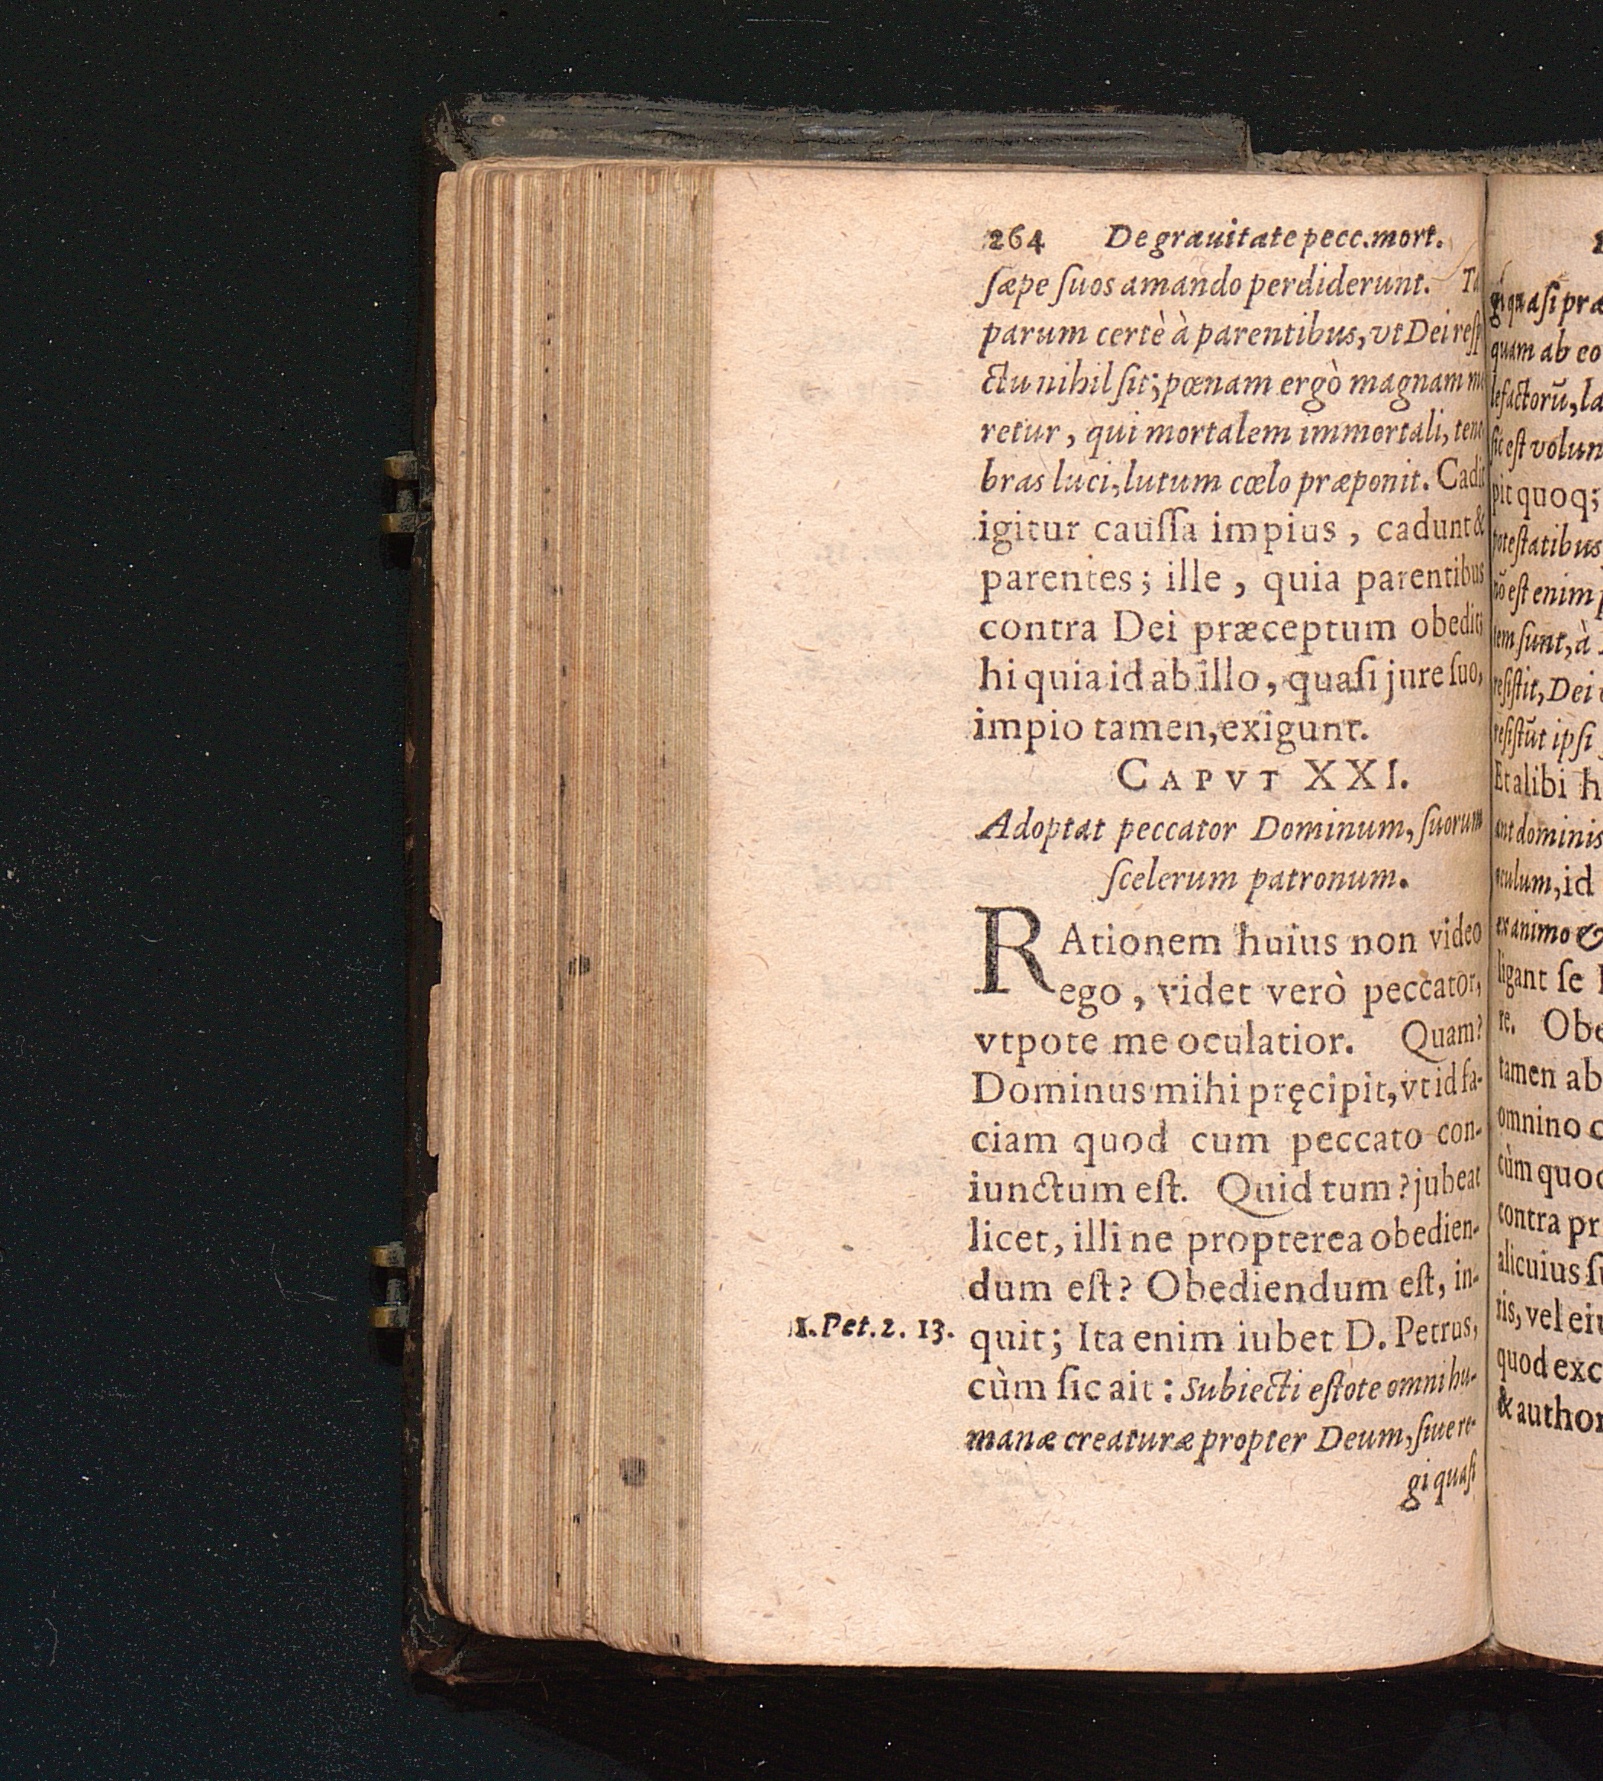 264 De grauitate pecc. mort.
sæpe suos amando perdiderunt.
parum certè à parentibus, vt Dei resp
ctu nihil sit; pœnam ergò magnam
retur, qui mortalem immortali, tene
bras luci, lutum cœlo præponit. Cadit
igitur caussa impius, cadunt &
parentes; ille, quia parentibus
contra Dei præceptum obedit;
hi quia id ab illo, quasi jure suo,
impio tamen, exigunt.
CAPVT XXI.
Adoptat peccator Dominum, suorum
scelerum patronum.
RAtionem huius non video
ego, videt verò peccator,
vtpote me oculatior. Quam?
Dominus mihi pręcipit, vt id fa-
ciam quod cum peccato con-
iunctum est. Quid tum? jubeat
licet, illi ne propterea obedien-
dum est? Obediendum est, in-
1. Pet. 2. 13. quit; Ita enim iubet D. Petrus,
cùm sic ait: Subiecti estote omni hu-
manæ creaturæ propter Deum, siue re-
gi quasi
gi quasi præ
quam ab eo
lefactorũ, la
sic est volun
pit quoq;
potestatibus
nõ est enim
sunt, à
resistit, Dei
resistũt ipsi
Et alibi h
dominis
oculum, id
ex animo &
ligant se
re. Obe
tamen ab
omnino c
cùm quod
contra pr
alicuius su
ris, vel eiu
quod exc
& author